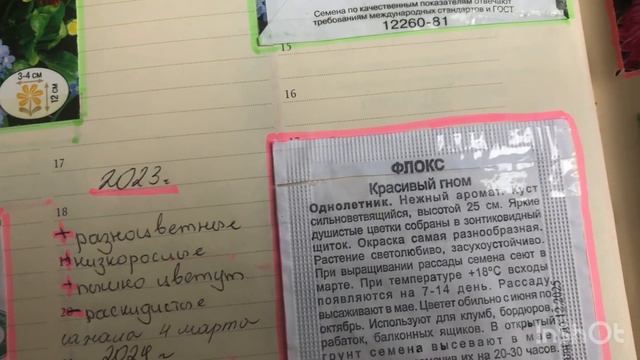 Семена по качественным показателям отвечают
требованиям международных стандартов и ГОСТ
12260-81
3-4 СМ
12 СМ
15
16
17
18
20
2023г
+ разноцветные
+ низкорослые
+ пышно цветут
- раскидистые
сажала 4 марта
2024 г
ФЛОКС
Красивый гном
Однолетник. Нежный аромат. Куст
сильноветвящийся, высотой 25 см. Яркие
душистые цветки собраны в зонтиковидный
щиток. Окраска самая разнообразная.
Растение светолюбиво, засухоустойчиво.
При выращивании рассады семена сеют в
марте. При температуре +18°С всходы
появляются на 7-14 день. Рассаду
высаживают в мае. Цветет обильно с июня по
октябрь. Используют для клумб, бордюров,
рабаток, балконных ящиков. В открытый
грунт семена высевают в мае
их на 20-30 часов.
12.2025
InShot